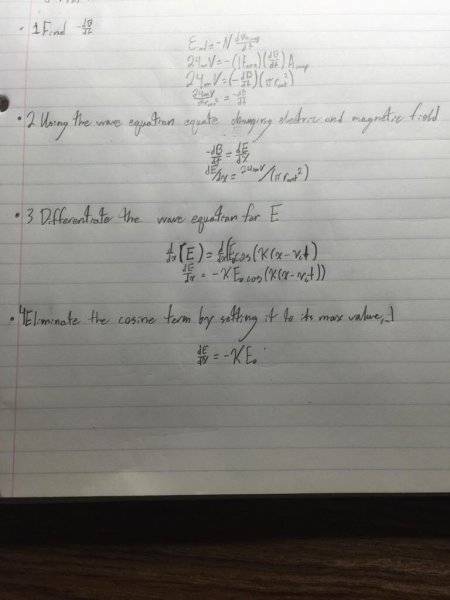 • 1 Find -dB/dt
= -N
24mV = -(1turn)(dB/dt) A
24mV = (-dB/dt)(πr²)
= -dB/dt
• 2 Using the wave equation equate changing electric and magnetic field
-dB/dt = dE/dx
dE/dx = 24mV/(πr²)
• 3 Differentiate the wave equation for E
d/dx(E) = d/dx(E₀cos(K(x-v₁t)
dE/dx = -KE₀cos(K(x-v₁t))
• 4 Eliminate the cosine term by setting it to its max value, 1
dE/dx = -KE₀